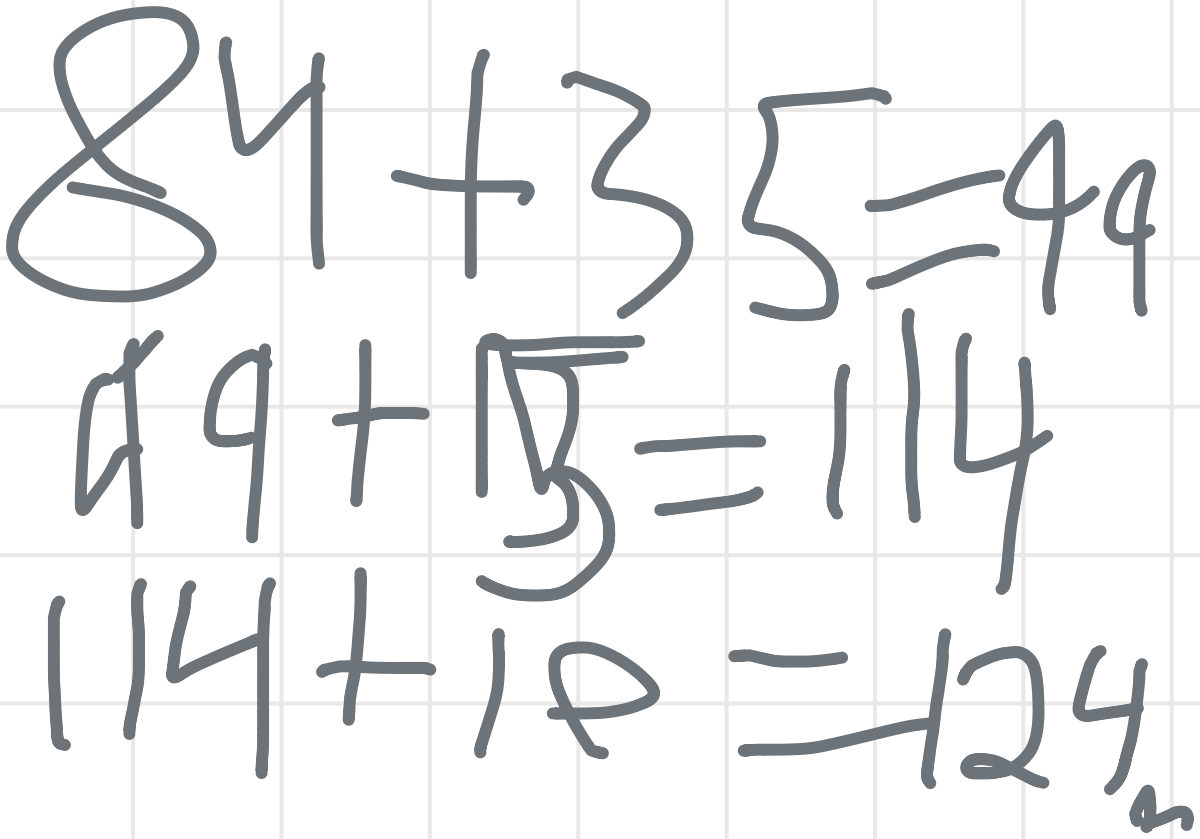 84+35=99
99+15=114
114+10=124